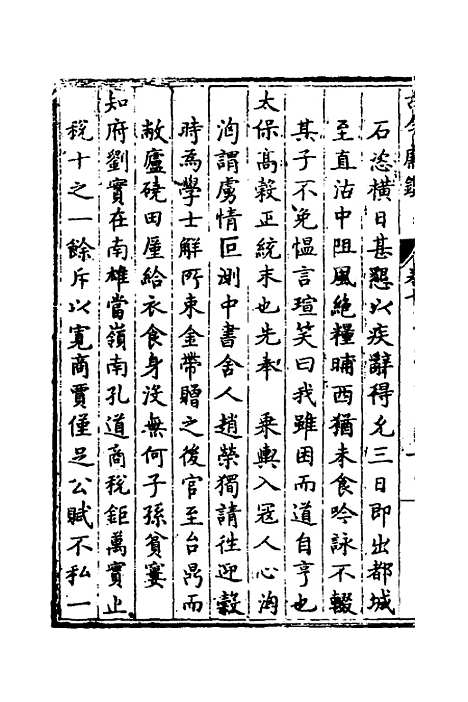 古今廉鑑
石恣橫日甚懇以疾辭得允三日即出都城
至直沽中阻風絶糧晡西猶未食吟詠不輟
其子不免慍言瑄笑曰我雖困而道自亨也
太保髙穀正統末也先奉 乘輿入冦人心洶
洶謂虜情叵測中書舍人趙榮獨請徃迎穀
時爲學士解所束金帶贈之後官至台鼎而
敝廬磽田厪給衣食身沒無何子孫貧窶
知府劉實在南雄當嶺南孔道商税鉅萬實止
税十之一餘斥以寛商賈僅足公賦不私一